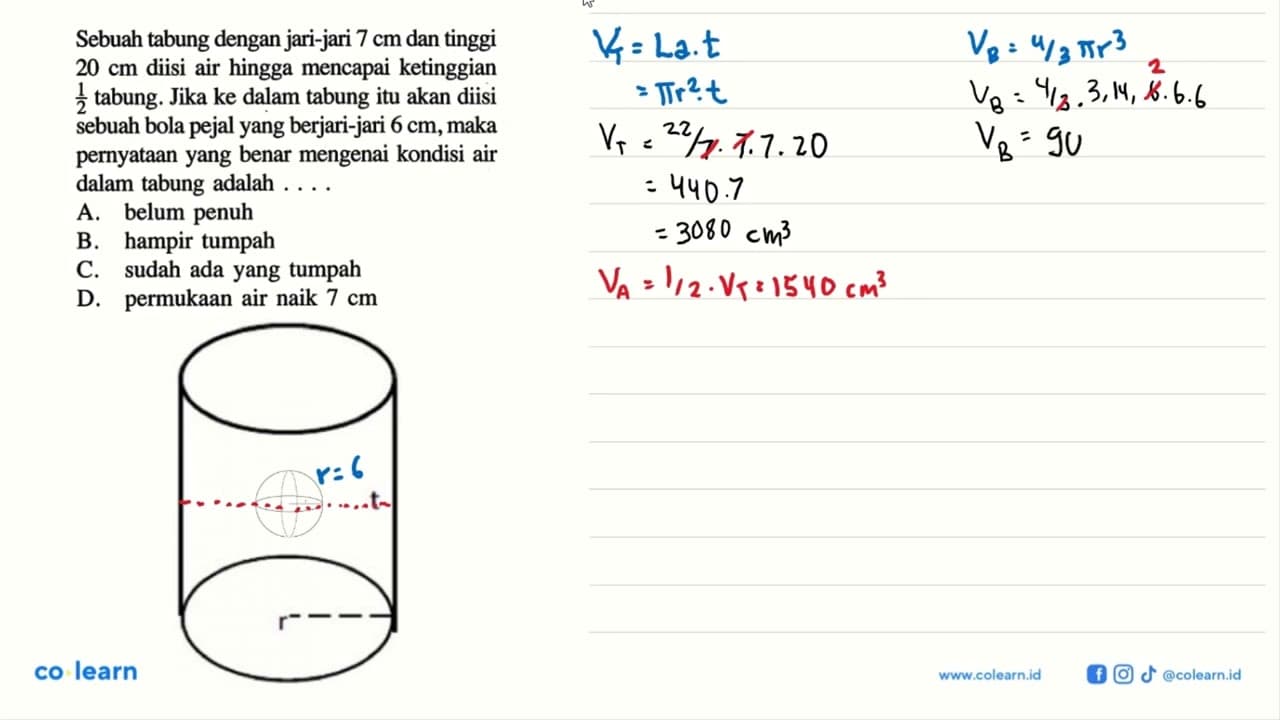 Sebuah tabung dengan jari-jari 7 cm dan tinggi
20 cm diisi air hingga mencapai ketinggian
1/2 tabung. Jika ke dalam tabung itu akan diisi
sebuah bola pejal yang berjari-jari 6 cm, maka
pernyataan yang benar mengenai kondisi air
dalam tabung adalah . . . .
A. belum penuh
B. hampir tumpah
C. sudah ada yang tumpah
D. permukaan air naik 7 cm
r=6
t
r
V_T = La.t
= πr².t
V_T = 22/7.7.7.20
= 440.7
= 3080 cm³
V_A = 1/2.V_T = 1540 cm³
V_B = 4/3 πr³
2
V_B = 4/3.3,14,6.6.6
V_B = 90
co learn
www.colearn.id
@colearn.id